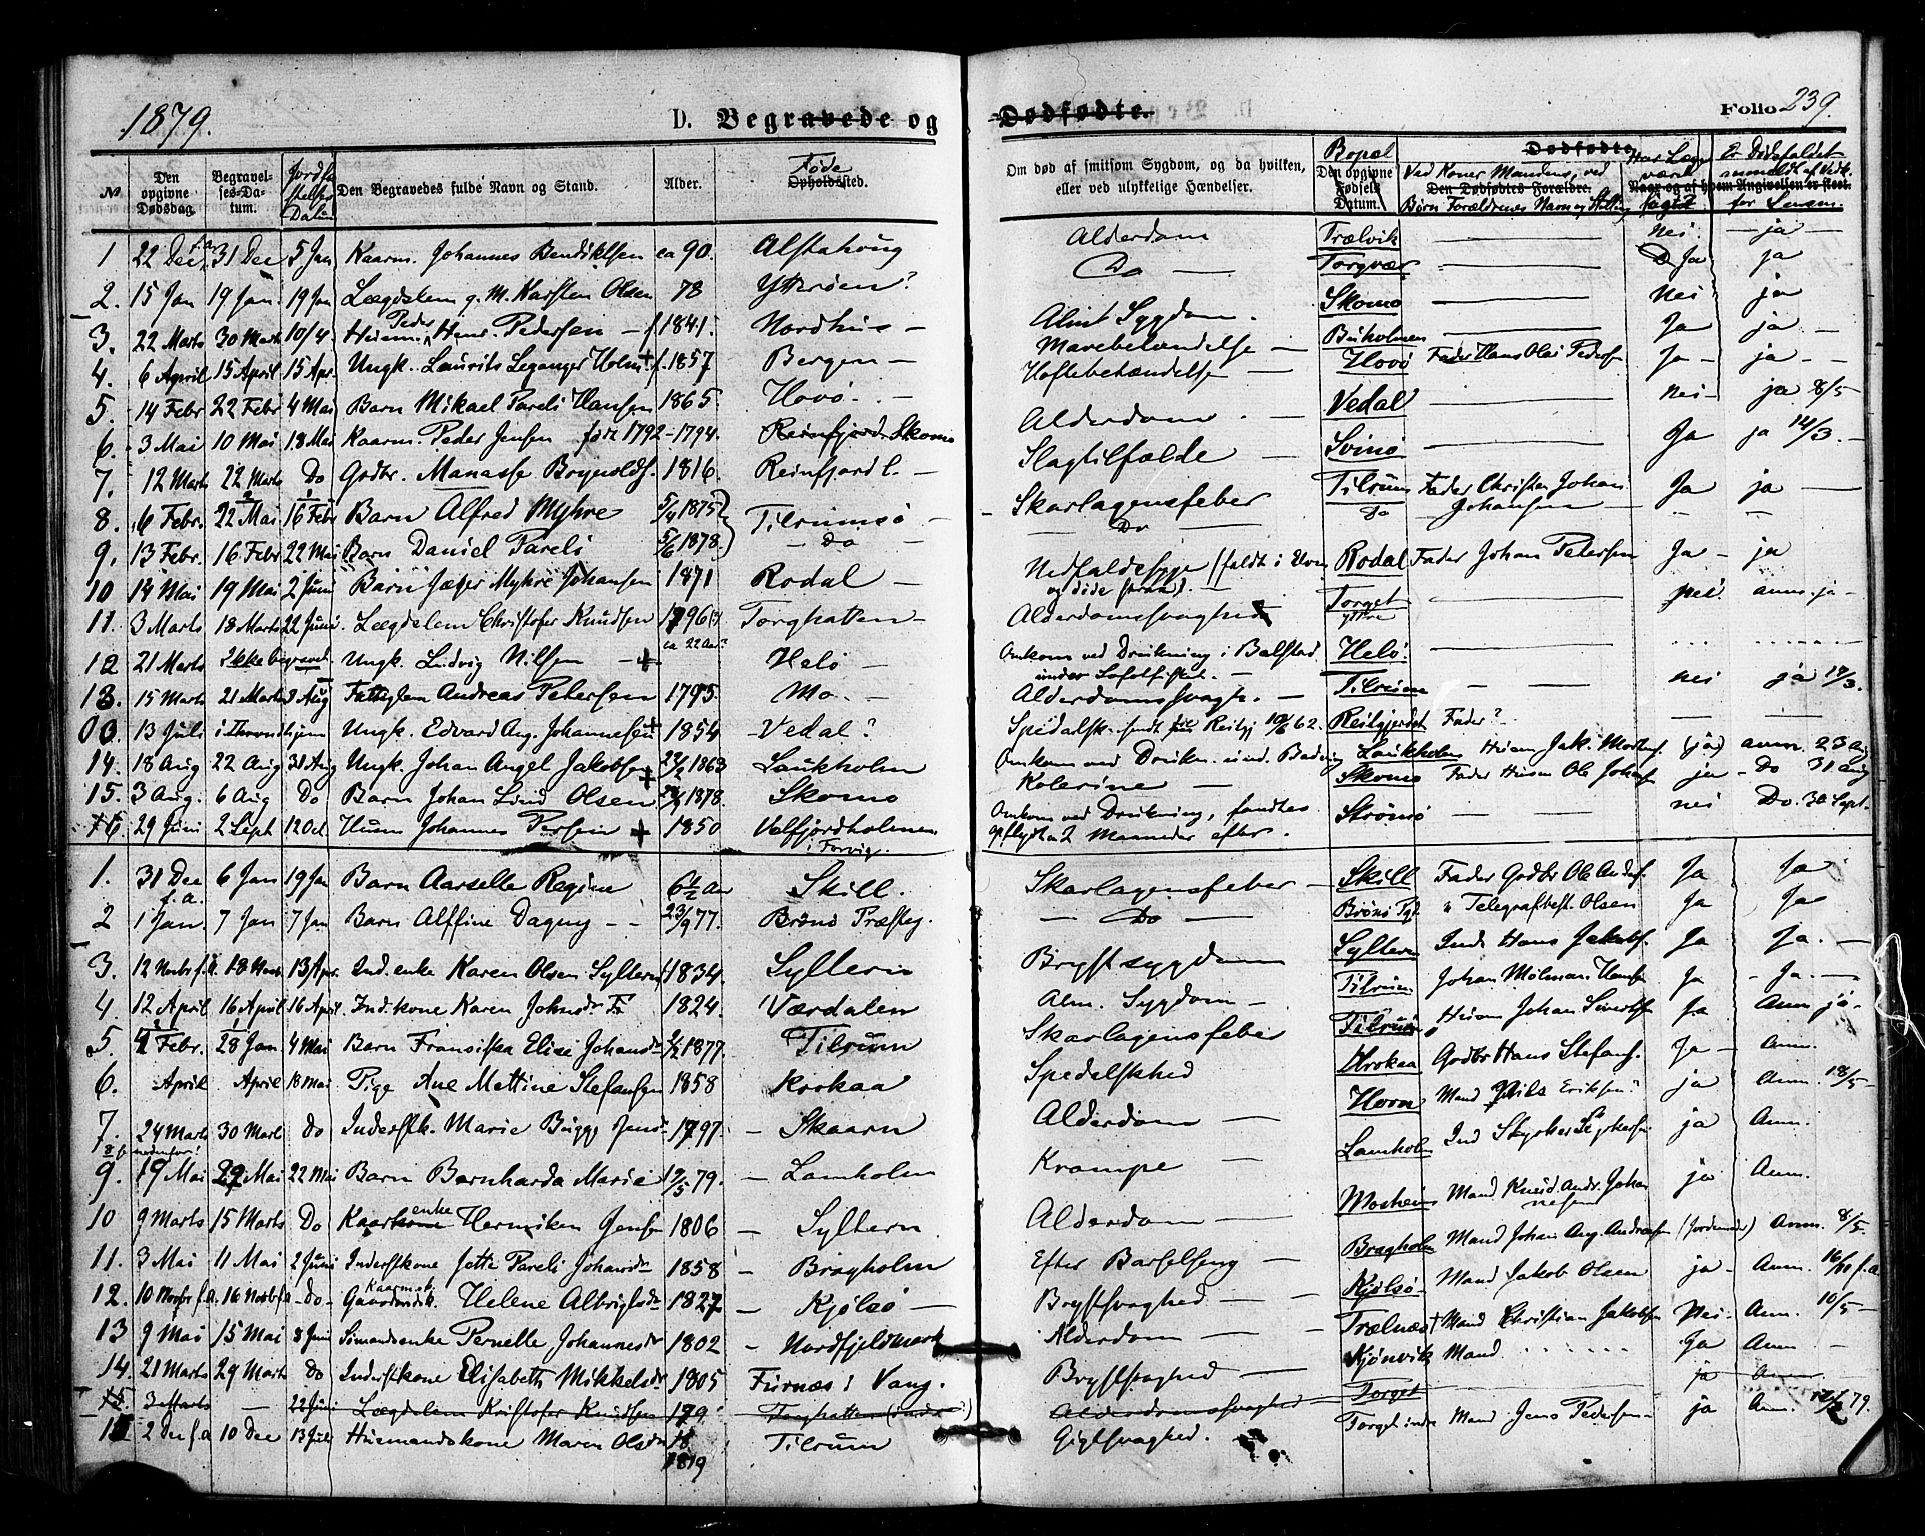 1879.
D. Begravede og
Dødfødte.
Folio 239.
№
Den opgivne Dødsdag.
Begravelses-Datum.
Jordfæstelses Datum
Den Begravedes fulde Navn og Stand.
Alder.
Føde Opholdssted.
Om død af smitsom Sygdom, og da hvilken, eller ved ulykkelige Hændelser.
Bopæl
Den opgivne Fødsels Datum.
Dødfødte.
Ved Koner Mandens, ved Børn Forældrenes Navn og Stilling
Den Dødfødtes Forældre.
Har Læge været søgt
Naar og af hvem Angivelsen er skeet.
Er Dødsfaldet anmeldt af Vedk. for Lensm.
1 22 Dec f.a. 31 Dec 5 Jan Kaarm. Johannes Bendiktsen ca 90. Alstahoug Alderdom Trælvik nei ja
2. 15 Jan 19 Jan 19 Jan Lægdslem g. M. Karsten Olsen 78 Ytterøen? Do Torgvær Ja ja
3. 22 Marts 30 Marts 10/4 Husm. Peder Henr. Pedersen f. 1841. Nordhus Almt Sygdom. Skomo nei ja
4. 6 April 15 April 15 Apr. Ungk. Laurits Leganger Holm f. 1857 Bergen Mavebetændelse Buholmen Ja ja
5. 14 Febr 22 Febr 4 Mai Barn Mikael Pareli Hansen 1865 Hovø Hoftebetændelse Hovø Fader Hans Olai Peders. Ja ja
6. 3 Mai 10 Mai 18 Mai Kaarm. Peder Jensen før 1792-1794. Reinfjord Skomo Alderdom Vedal nei ja 8/5
7. 12 Marts 22 Marts Do Gdbr. Manasse Brynolds. 1816. Reinfjord l. Slagtilfælde Svinø Ja ja 14/3.
8. 6 Febr. 22 Mai 16 Febr Barn Alfred Myhre 5/4 1875 Tilrumsø Skarlagensfeber Tilrum Fader Christen Johan Johansen Ja ja
9. 13 Febr. 16 Febr 22 Mai Barn Daniel Pareli 5/6 1878. Do Do Do
10 14 Mai 19 Mai 2 Juni Barn Jæger Myhre Johansen 1871 Rodal Nedfaldssyge (faldt i Ilden og døde strax). Rodal Fader Johan Petersen Ja ja
11. 3 Marts 18 Marts 22 Juni. Lægdslem Christofer Knudsen 1796 Torghatten Alderdomssvaghed Torget ytre nei anm. ja
12 21 Marts Ikke begravet Ungk. Ludvig Nilsen + ca 22 Aar? Helø Omkom ved Drukning i Balstad under Lofotfisket. Helø.
13. 15 Marts 21 Marts 3 Aug Fattiglem Andreas Petersen 1795. Mo. Alderdomssvagh. Tilrum nei ja 17/3.
00. 13 Juli i Throndhjem Ungk. Edvard Aug. Johannesen + 1854 Vedal? Spedalsk. sendt fra Reitgj 10/6 62. Reitgjerdet Fader?
14. 18 Aug 22 Aug 31 Aug Ungk. Johan Angel Jakobsen + 22/2 1863 Laukholm Omkom ved Drukn. und. Badning Laukholm Husm Jak. Mortens. (ja) anm. 23 Aug
15. 3 Aug. 6 Aug Do Barn Johan Lind Olsen 1878. Skomo Kolerine Skomo Fader Husm Ole Johans. ja Do 31 Aug
16 29 Juni 2 Sept 12 Oct. Husm Johannes Persen + 1850 Velfjordholmen i Forvig. Omkom ved Drukning, fandtes opflydt a 2 Maaneder efter. Strømø nei Do. 30 Sept.
1. 31 Dec f.a. 6 Jan 19 Jan Barn Aarselle Regine 6½ Aar Skill. Skarlagensfeber Skill Fader Gdbr Ole Anders. Ja Ja
2 1 Jan. 7 Jan 7 Jan Barn Alffine Dagny 23/9 77. Brønø Præsteg. Do Brønø Pgd. " Telegrafbest. Olsen Ja Ja
3. 12 Marts f.A. 18 Marts 13 Apr. Ind.enke Karen Olsen Syltern f. 1834. Syltern Brystsygdom Syltern Ind Hans Jakobs. Ja Ja.
4. 12 April 16 April 16 April. Ind.kone Karen Johnsdr. 1824. Værdalen Alm. Sygdom Tilrum Johan Molman Hans. Ja Ja.
5. Febr. 28 Jan 4 Mai Barn Fransiska Elise Johansdr 1877. Tilrum Skarlagensfeber Tilrum Husm Johan Sivertsen Ja Anm ja
6. April April 18 Mai Pige Ane Mettine Stefansen 1858 Krokaa Spedalskhed Krokaa Gdbr Hans Stefans. Ja Anm.
7. 24 Marts 30 Marts Do Inderstk. Marie Bugge Jens. 1797. Skaarn Alderdom Horn Mand Nils Eriksen? ja Anm. 18/5
8 f. nedenfor!
9. 19 Mai 29 Mai 22 Mai Barn Bernharda Marie 12/5 79. Lamholm Krampe Lamholm Ind Styrker Styrkersen ja Anm.
10 9 Marts 15 Marts Do Kaarkone enke Henriken Jens. 1806 Syltern Alderdom Mosheim Mand Knud. Andr. Johannesen ja Anm.
11. 3 Mai 11 Mai 2 Juni Inderstkone Jette Pareli Johansdr 1858 Bragholm Efter Barselseng Bragholm Mand Johan Aug. Andreasen (Jordemoder) Anm. 8/5.
12. 10 Novbr f.a. 16 Novbr f.a Do. Kaarmsk. Helene Albrigtsdr 1827 Kjølsø Brystsvaghed Kjølsø Mand Jakob Olsen ja Anm. 16/11 f.a
13 9 Mai 15 Mai 8 Juni Simandsenke Pernelle Johannesdr 1802 Nordfjeldmark Alderdom Trælnæs + Mand Christian Jakobsen Nei Anm. 10/5
14. 21 Marts 29 Marts Do Inderstkone Elisabeth Mikkelsdr 1805 Furnæs i Vang. Brystsvaghed Kjønvik Mand Ja Anm.
15. 3 Marts 22 Juni Lægdslem Kristofer Knudsen 179 Torghatten Alderdomssvaghed Torget ja Anm
15 2 Dec f.a 10 Dec 13 Juli Husmandskone Maren Olsdr 18 1819 Tilrum Gigtsvaghed. Torget indre Mand Jens Pedersen ja An. 79.